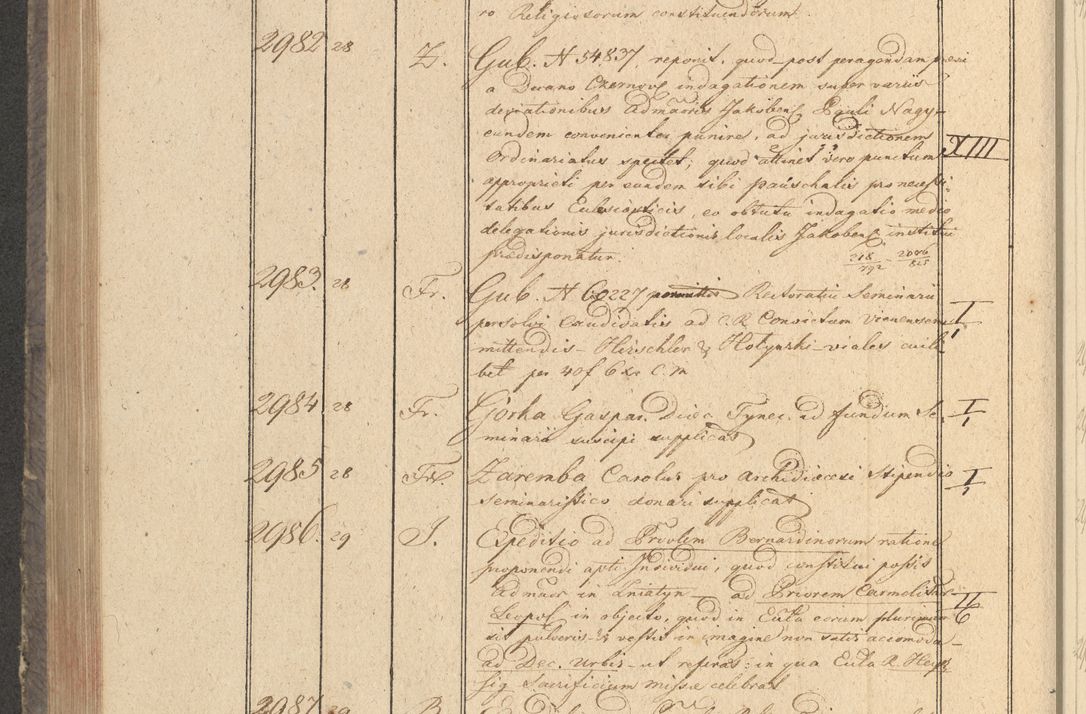 ro Religiosorum constituendorum.
2982 28 Z. Gub. N 54837, reponit, quod post peragendam
a Decano Czernov indagationem super variis
Admaris Jakobens Pauli Nagy
eundem convenienter punire, ad jurisdictionem
Ordinariatus spectet; quod attinet vero punctum XIII
appropriati per eundem sibi pauschalis pro necessi
tatibus Ecclesiasticis, eo obtutu indagatio medio
delegationis jurisdictionis localis Jakobens institui
prædisponatur. 218/792 2006/825
2983. 28 Fr. Gub. N 60227 Rectoratui Seminarii
persolvi Candidatis ad C.R. Convictum Viennensem I/1
mittendis Hirschler & Hotynski viales cuili
bet per 40f 6 Xr C.M
2984. 28 Fr. Gorka Gaspar. Diœc. Tynec. ad fundum Se- I/1
minarii suscipi supplicat
2985 28 Fr. Zaremba Carolus pro Archidiœcesi Stipendio I/1
Seminaristico donari supplicat
2986. 29 J. Expeditio ad Provlem Bernardinorum ratione
proponendi apti Individui, quod constitui possit
Admaer in Sniatyn — ad Priorem Carmelitar
Leopol in objecto, quod in Ecclâ eorum plurimum II/6
sit pulveris & vestis in imagine non satis accomoda-
ad Dec. Urbis ut referat: in qua Eccla R. Heys
sig Sacrificium missæ celebrat
2987 29 B.